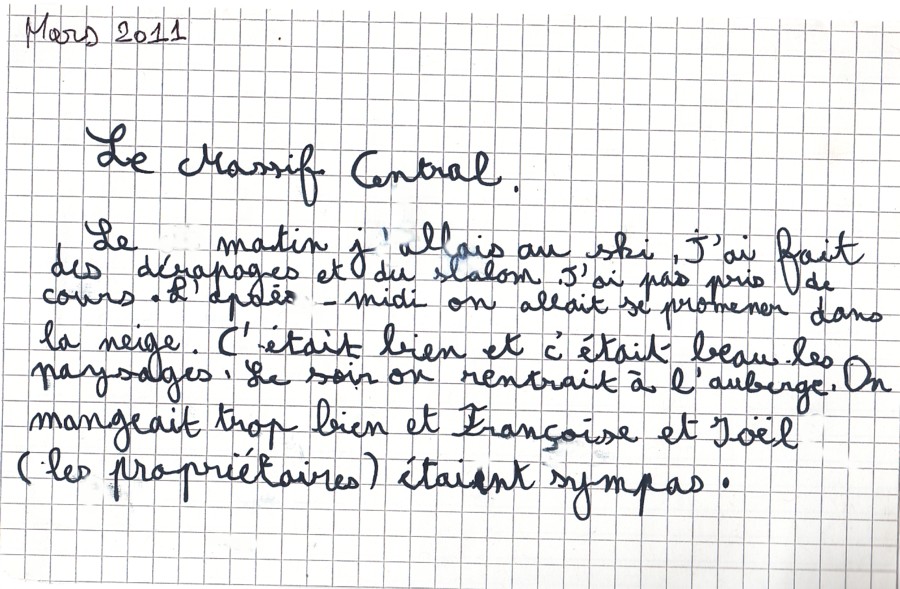 Mars 2011
Le Massif Central.
Le matin j'allais au ski. J'ai fait
des dérapages et du slalom. J'ai pas pris de
cours. L'après-midi on allait se promener dans
la neige. C'était bien et c'était beau les
paysages. Le soir on rentrait à l'auberge. On
mangeait trop bien et Françoise et Joël
(les propriétaires) étaient sympas.